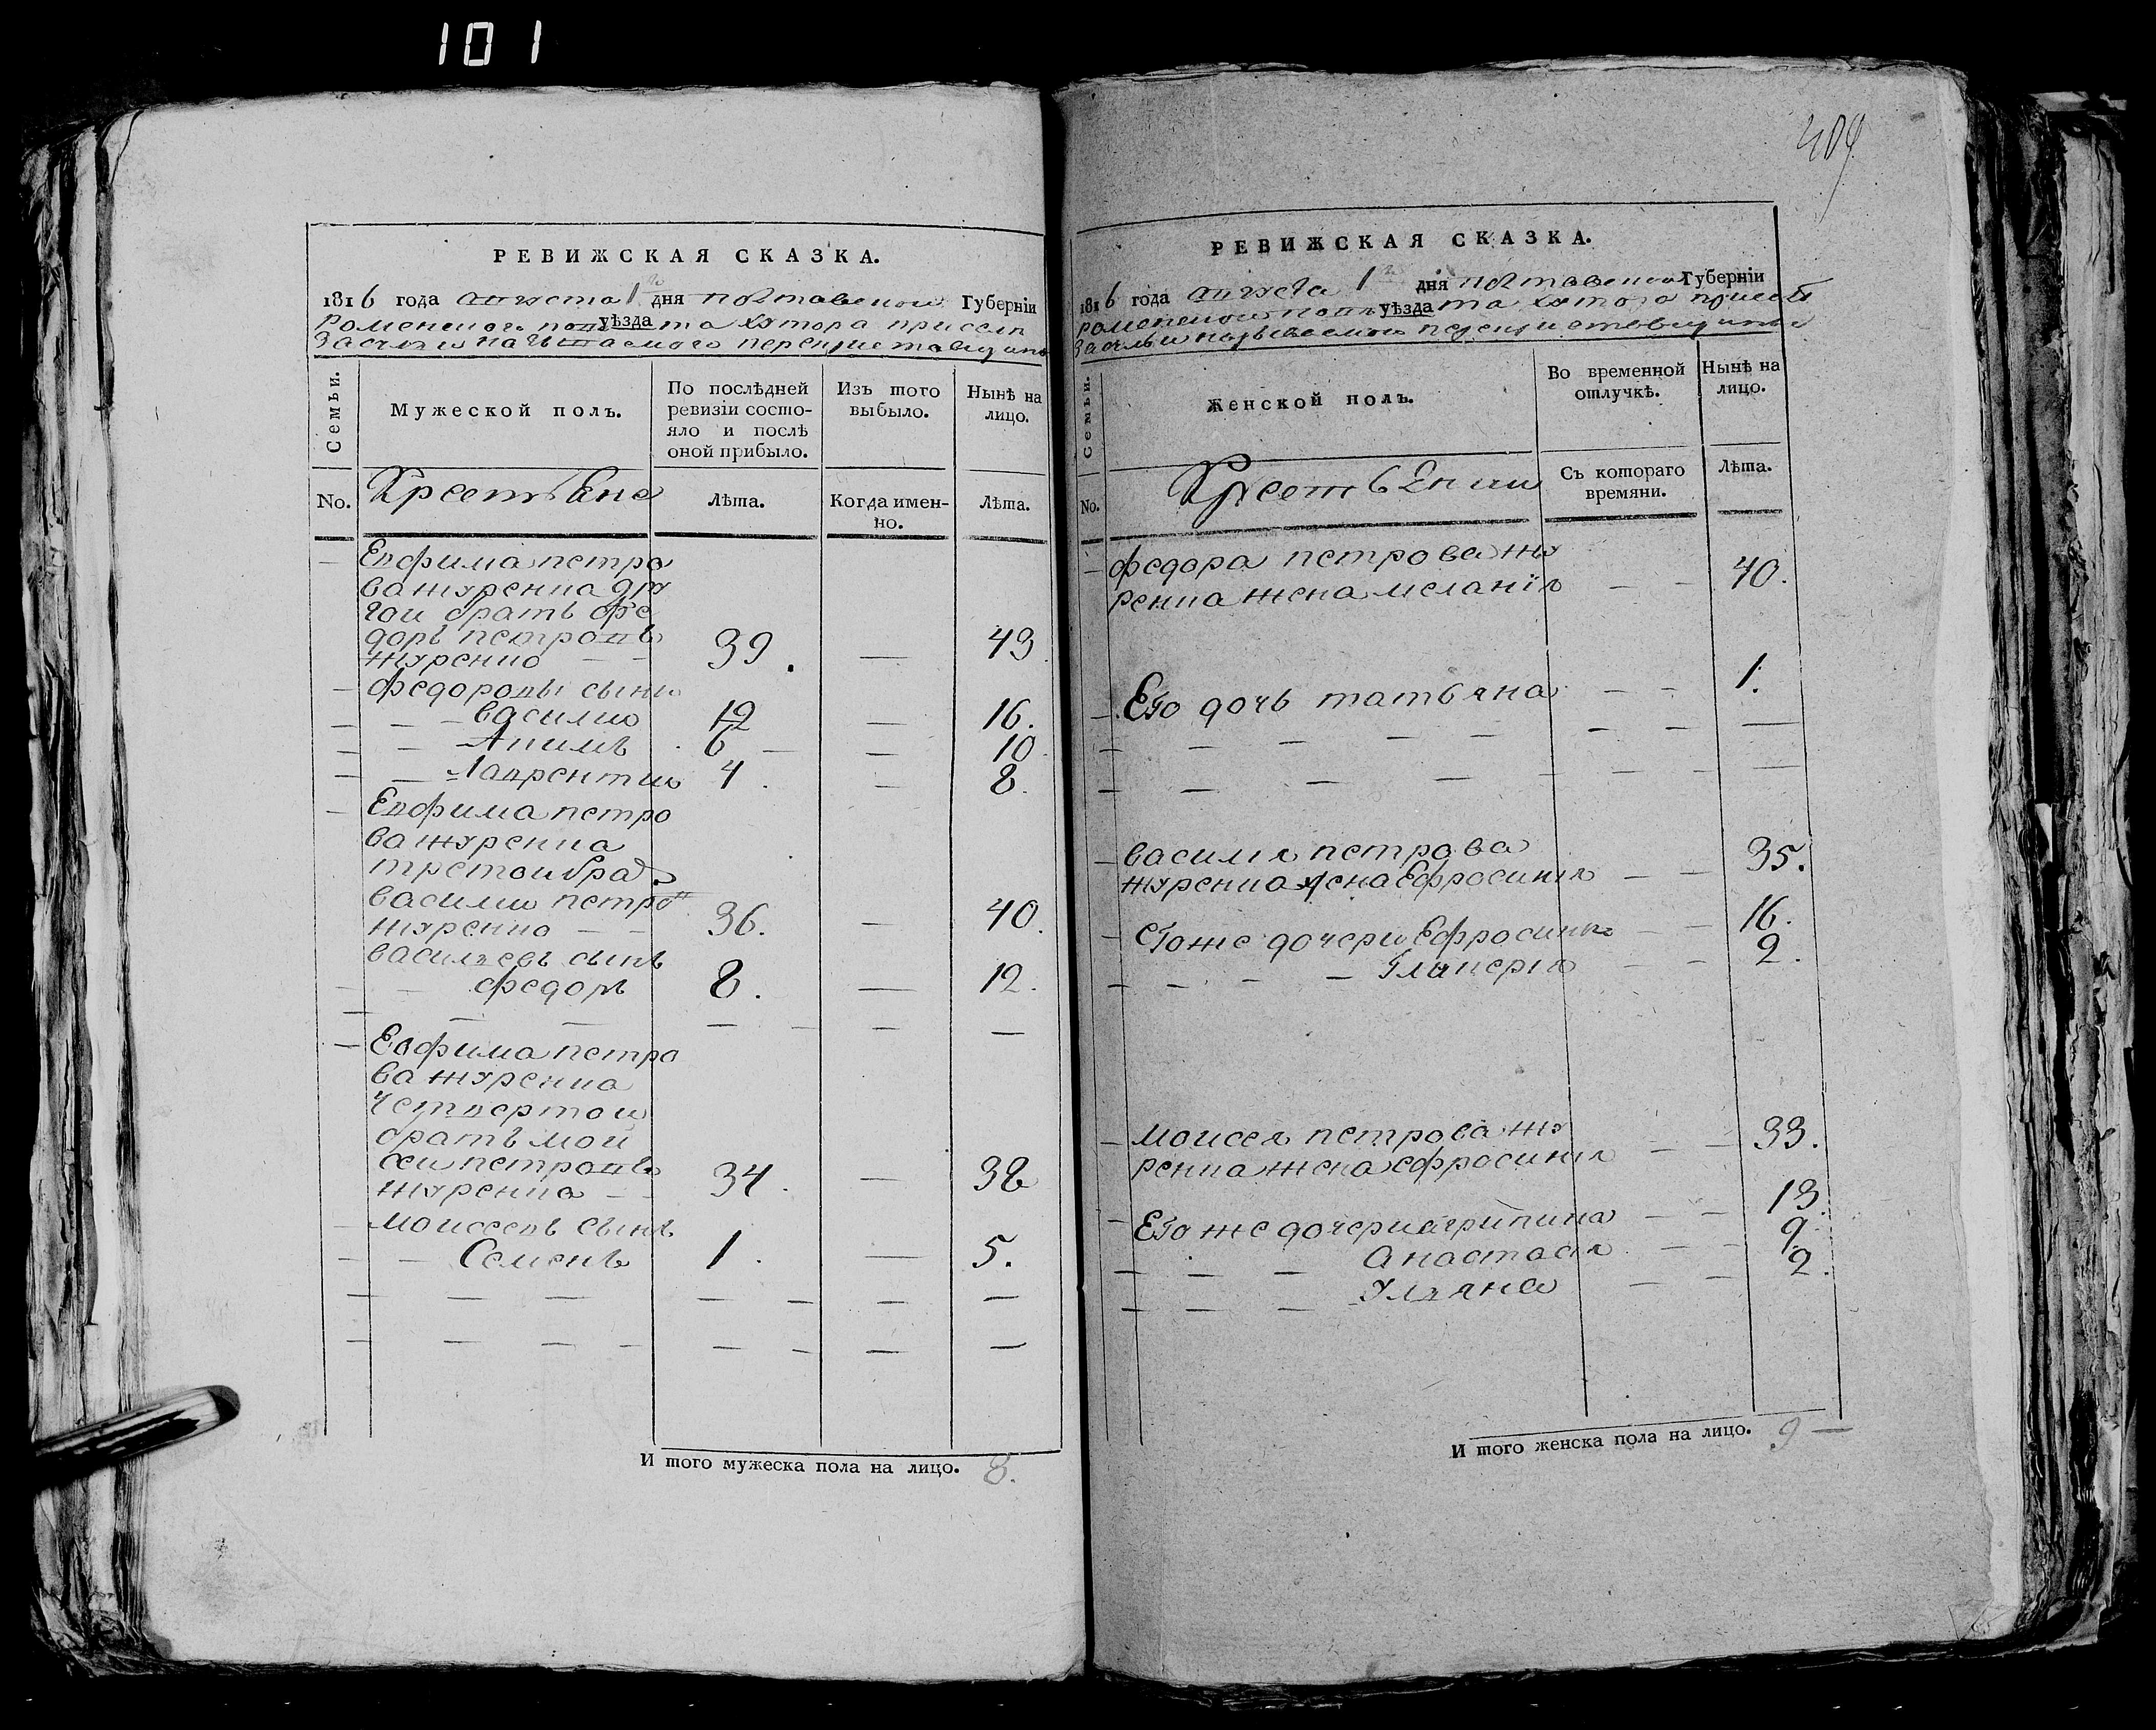 101
РЕВИЖСКАЯ СКАЗКА.
1816 года августа 1го дня полтавской Губерніи
роменского повѣта уѣзда хутора при селѣ
Засульи называемого
Семьи.
Мужеской полъ.
По послѣдней ревизіи состо-
яло и послѣ
оной прибыло.
Изъ того
выбыло.
Нынѣ на
лицо.
No.
Крестьяне
Лѣта.
Когда имен-
но.
Лѣта.
— Евфима петро
ва журенка дру
гои братъ фе
доръ петровъ
журенко — — 39. — 43
— федоровы сыны
— — — василии 12 — 16.
— — Акимъ 6 — — 10
— — Лаврентии 4. — 8.
— Евфима петро
ва журенка
третои брад.
василии петровъ
журенко — — 36. — 40.
василиевъ сынъ
— — федоръ 8. — 12.
— — — — — — —
— Евфима петро
ва журенка
четвертои
братъ мои
сеи петровъ
журенка — — 34. — 38
— моисеевъ сынъ
— — Семенъ 1. — 5.
— — — — — — —
— — — — — — — —
И того мужеска пола на лицо. 8.
409
РЕВИЖСКАЯ СКАЗКА.
1816 года августа 1го дня полтавской Губерніи
роменского повѣта уѣзда хутора при селѣ
Засульи называемого
Семьи.
Женской полъ.
Во временной
отлучкѣ.
Нынѣ на
лицо.
No.
Крестьянки
Съ котораго
времяни.
Лѣта.
— федора петрова жу
ренка жена меланія — — 40.
— Его дочь татьяна — — 1.
— — — — — — — —
— — — — — — — —
— василия петрова
журенка жена Ефросинія — — 35.
— Егоже дочери Ефросинія — — 16.
— — — — Гликерія — — 2.
— моисея петрова жу
ренка жена ефросинія — — 33.
— Егоже дочери агрипина — — 13.
— — — Анастасія — — 9.
— — — Уляна — — 2.
И того женска пола на лицо. 9 —